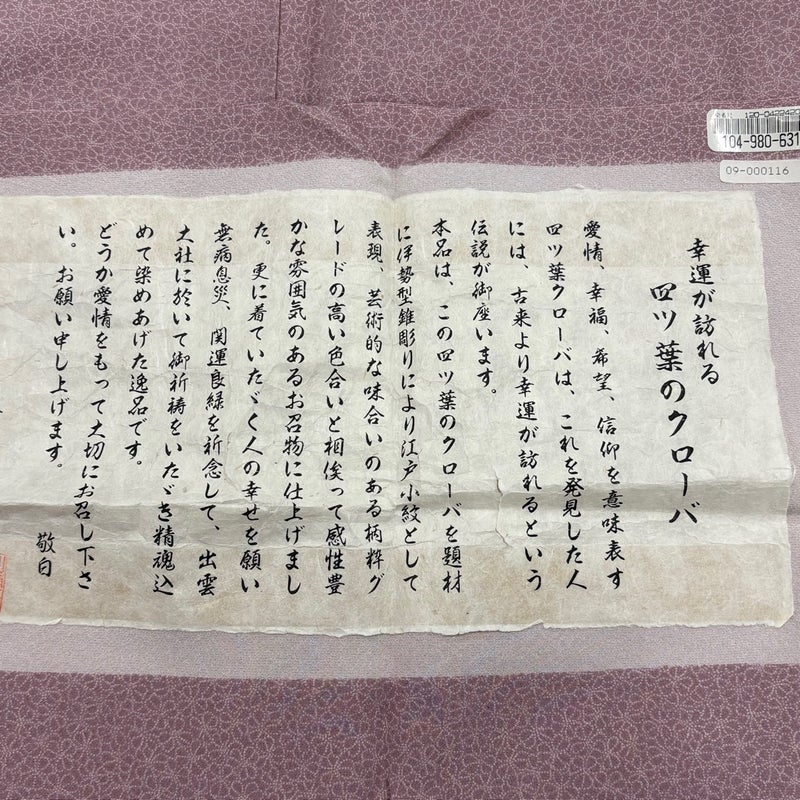 幸運が訪れる
四ツ葉のクローバ
愛情、幸福、希望、信仰を意味表す
四ツ葉クローバは、これを発見した人
には、古来より幸運が訪れるという
伝説が御座います。
本品は、この四ツ葉のクローバを題材
に伊勢型錐彫りにより江戸小紋として
表現、芸術的な味合いのある柄粋グ
レードの高い色合いと相俟って感性豊
かな雰囲気のあるお召物に仕上げまし
た。更に着ていたゞく人の幸せを願い
無病息災、関運良緑を祈念して、出雲
大社に於いて御祈祷をいたゞき精魂込
めて染めあげた逸品です。
どうか愛情をもって大切にお召し下さ
い。お願い申し上げます。
敬白
104-980-631
09-000116